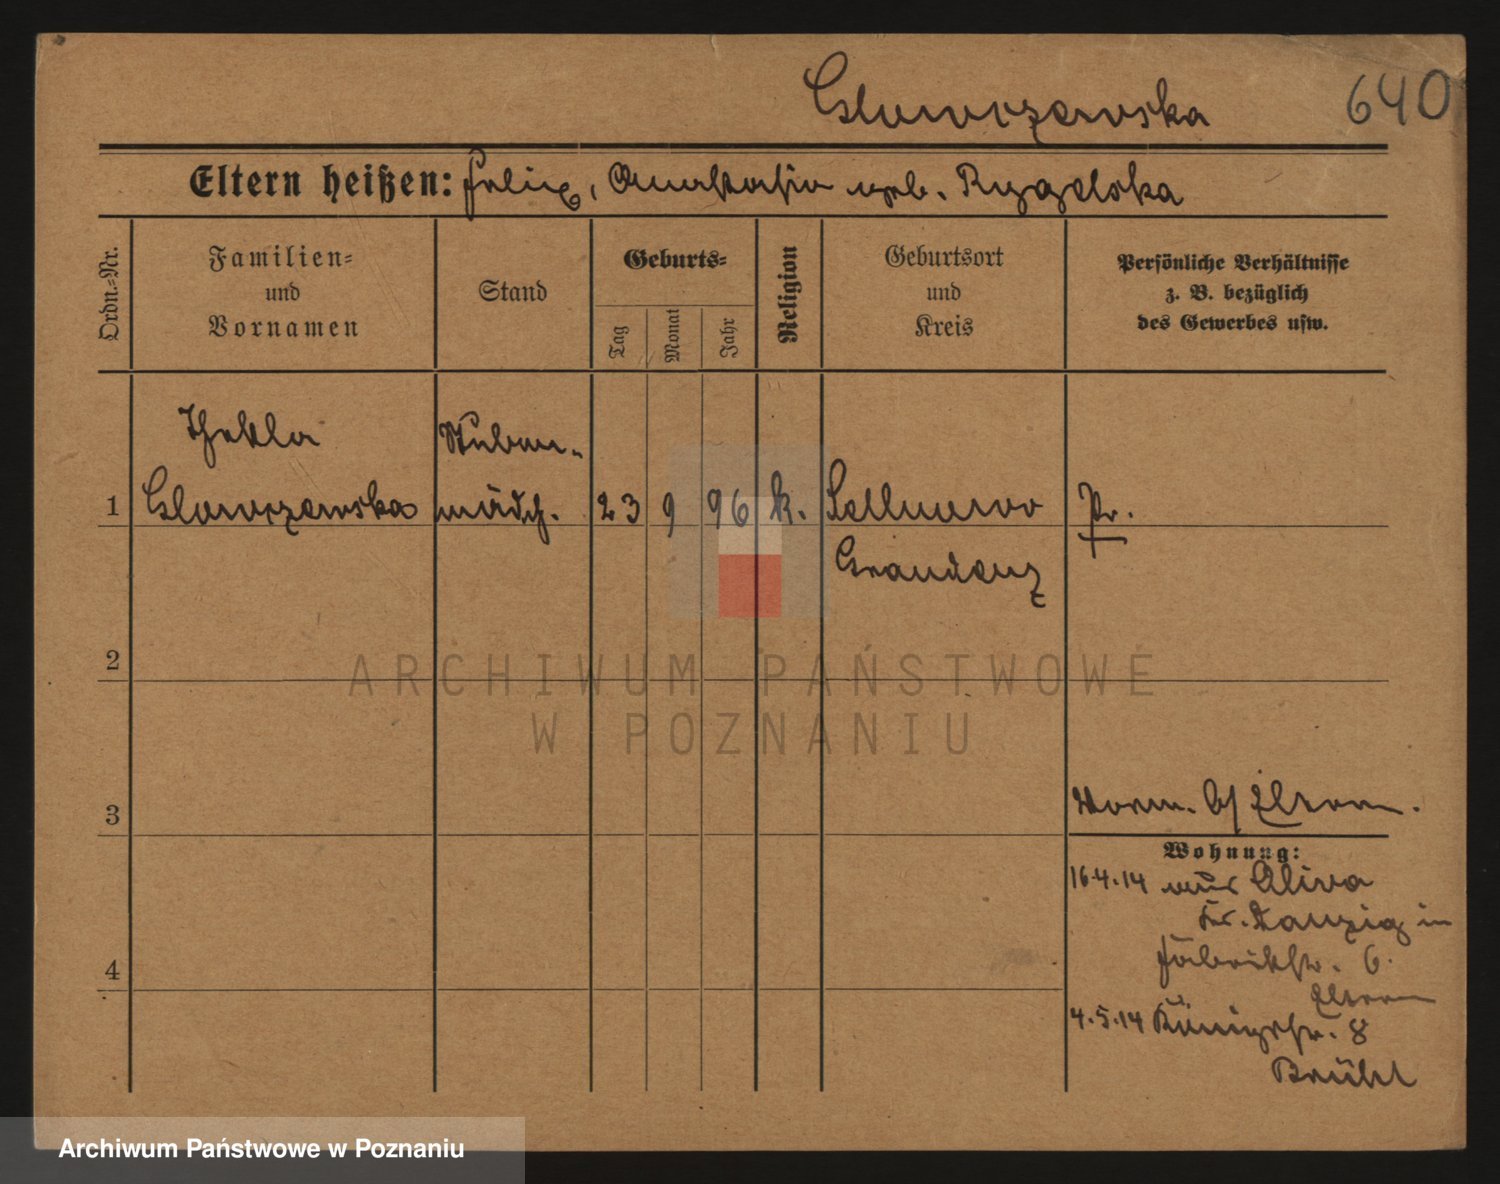 Glowczewska 640
Eltern heißen: Felix, Anastasia geb. Rygelska
Ordn.-Nr.
Familien-
und
Vornamen
Stand
Geburts-
Tag
Monat
Jahr
Religion
Geburtsort
und
Kreis
Persönliche Verhältnisse
z. B. bezüglich
des Gewerbes usw.
Thekla Stuben-
1 Glowczewska mädch. 23 9 96 k. Sellnowo Pr.
Graudenz
2
ARCHIWUM PAŃSTWOWE
W POZNANIU
3
b/ Eltern.
Wohnung:
16.4.14 aus Oliva
Kr. Danzig in
Fabrikstr. 6.
Eltern
4
4.5.14 Königstr. 8
Brühl
Archiwum Państwowe w Poznaniu